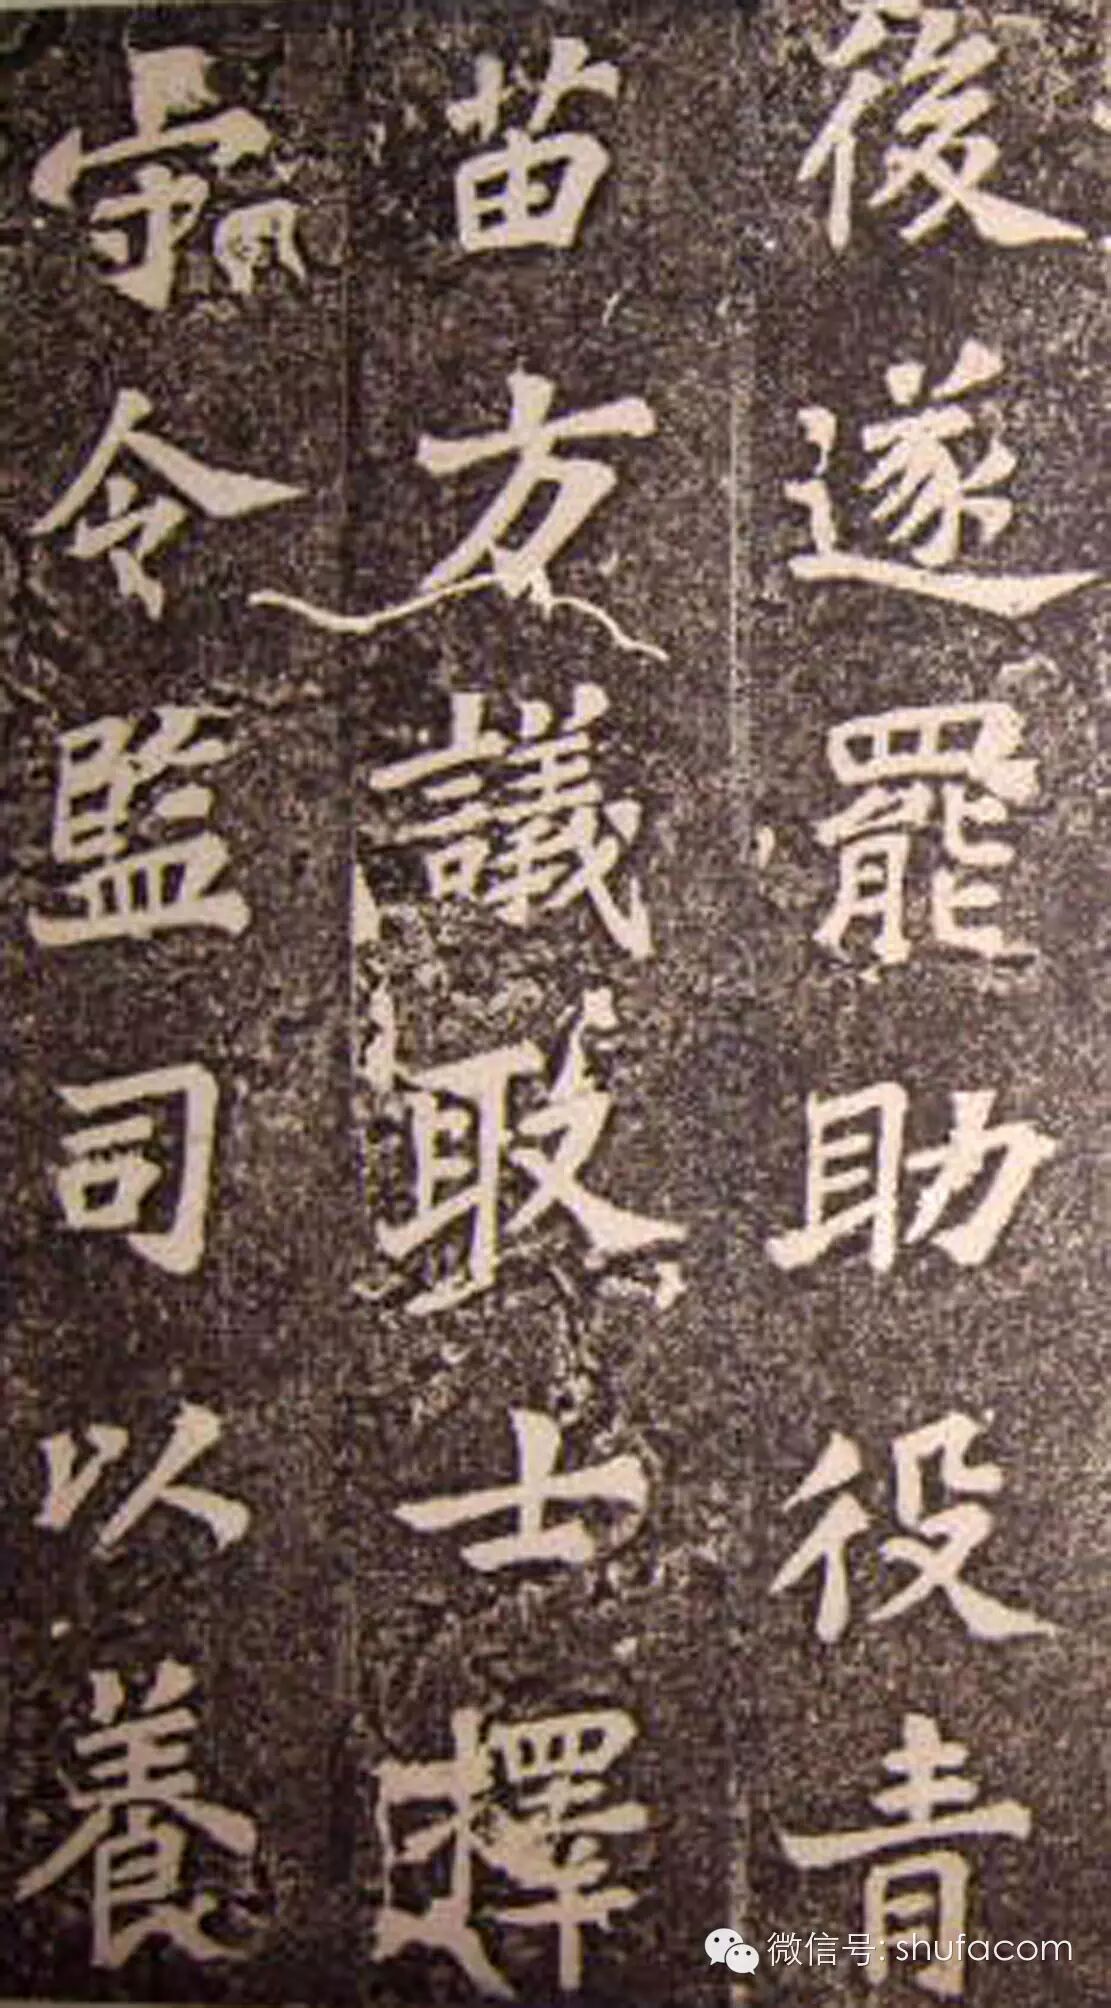 後遂罷助役青
苗方議取士擇
守令監司以養
微信号: shufacom